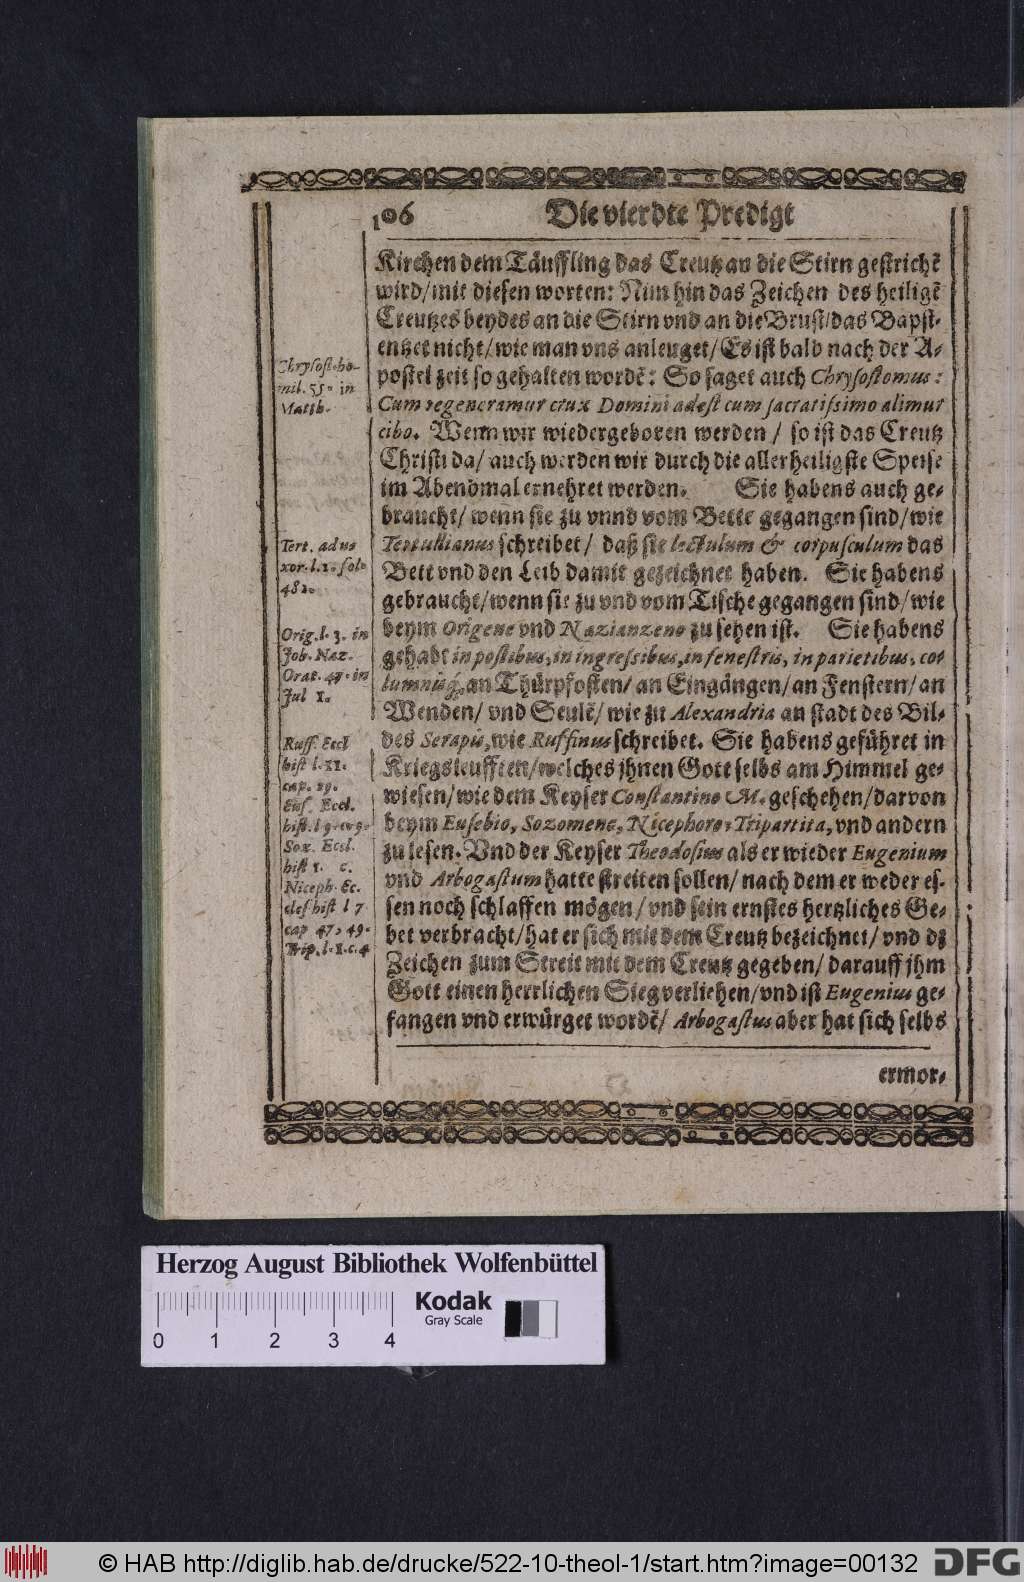 106 Die vierdte Predigt
Kirchen dem Täuffling das Creutz an die Stirn gestrichẽ
wird/mit diesen worten: Nim hin das Zeichen des heiligẽ
Creutzes beydes an die Stirn vnd an die Brust/das Bapst-
entzet nicht/wie man vns anleuget/Es ist bald nach der A-
postel zeit so gehalten wordẽ: So saget auch Chrysostomus:
Cum regeneramur crux Domini adest cum sacratissimo alimur
cibo. Wenn wir wiedergeboren werden / so ist das Creutz
Christi da/ auch werden wir durch die allerheiligste Speise
im Abendmal ernehret werden. Sie habens auch ge-
braucht/ wenn sie zu vnnd vom Bette gegangen sind/wie
Tertullianus schreibet/ daß sie lectulum & corpusculum das
Bett vnd den Leib damit gezeichnet haben. Sie habens
gebraucht/wenn sie zu vnd vom Tische gegangen sind/wie
beym Origene vnd Nazianzeno zu sehen ist. Sie habens
gehabt in postibus, in ingressibus, in fenestris, in parietibus, co-
lumnisq́, an Thürpfosten/ an Eingängen/an Fenstern/an
Wenden/ vnd Seulẽ/ wie zu Alexandria an stadt des Bil-
des Serapis, wie Ruffinus schreibet. Sie habens geführet in
Kriegsleufften/welches jhnen Gott selbs am Himmel ge-
wiesen/wie dem Keyser Constantino M. geschehen/darvon
beym Eusebio, Sozomene, Nicephoro, Tripartita, vnd andern
zu lesen. Vnd der Keyser Theodosius als er wieder Eugenium
vnd Arbogastum hatte streiten sollen/ nach dem er weder es-
sen noch schlaffen mögen/ vnd sein ernstes hertzliches Ge-
bet verbracht/hat er sich mit dem Creutz bezeichnet/ vnd dz
Zeichen zum Streit mit dem Creutz gegeben/ darauff jhm
Gott einen herrlichen Sieg verliehen/vnd ist Eugenius ge-
fangen vnd erwürget wordẽ/ Arbogastus aber hat sich selbs
ermor-
Chrysost. ho-
mil. 55. in
Matth.
Tert. ad ux
xor. l. 2. fol.
482.
Orig. l. 3. in
Job. Naz.
Orat. 47. in
Jul 1.
Ruff. Eccl
hist l. 11.
cap. 29.
Eus. Eccl.
hist. l 9. c. 9.
Soz. Eccl.
hist 1. c.
Niceph. Ec.
cles hist l 7
cap 47, 49.
Trip. l. 1. c. 4
Herzog August Bibliothek Wolfenbüttel
0 1 2 3 4
Kodak
Gray Scale
© HAB http://diglib.hab.de/drucke/522-10-theol-1/start.htm?image=00132
DFG